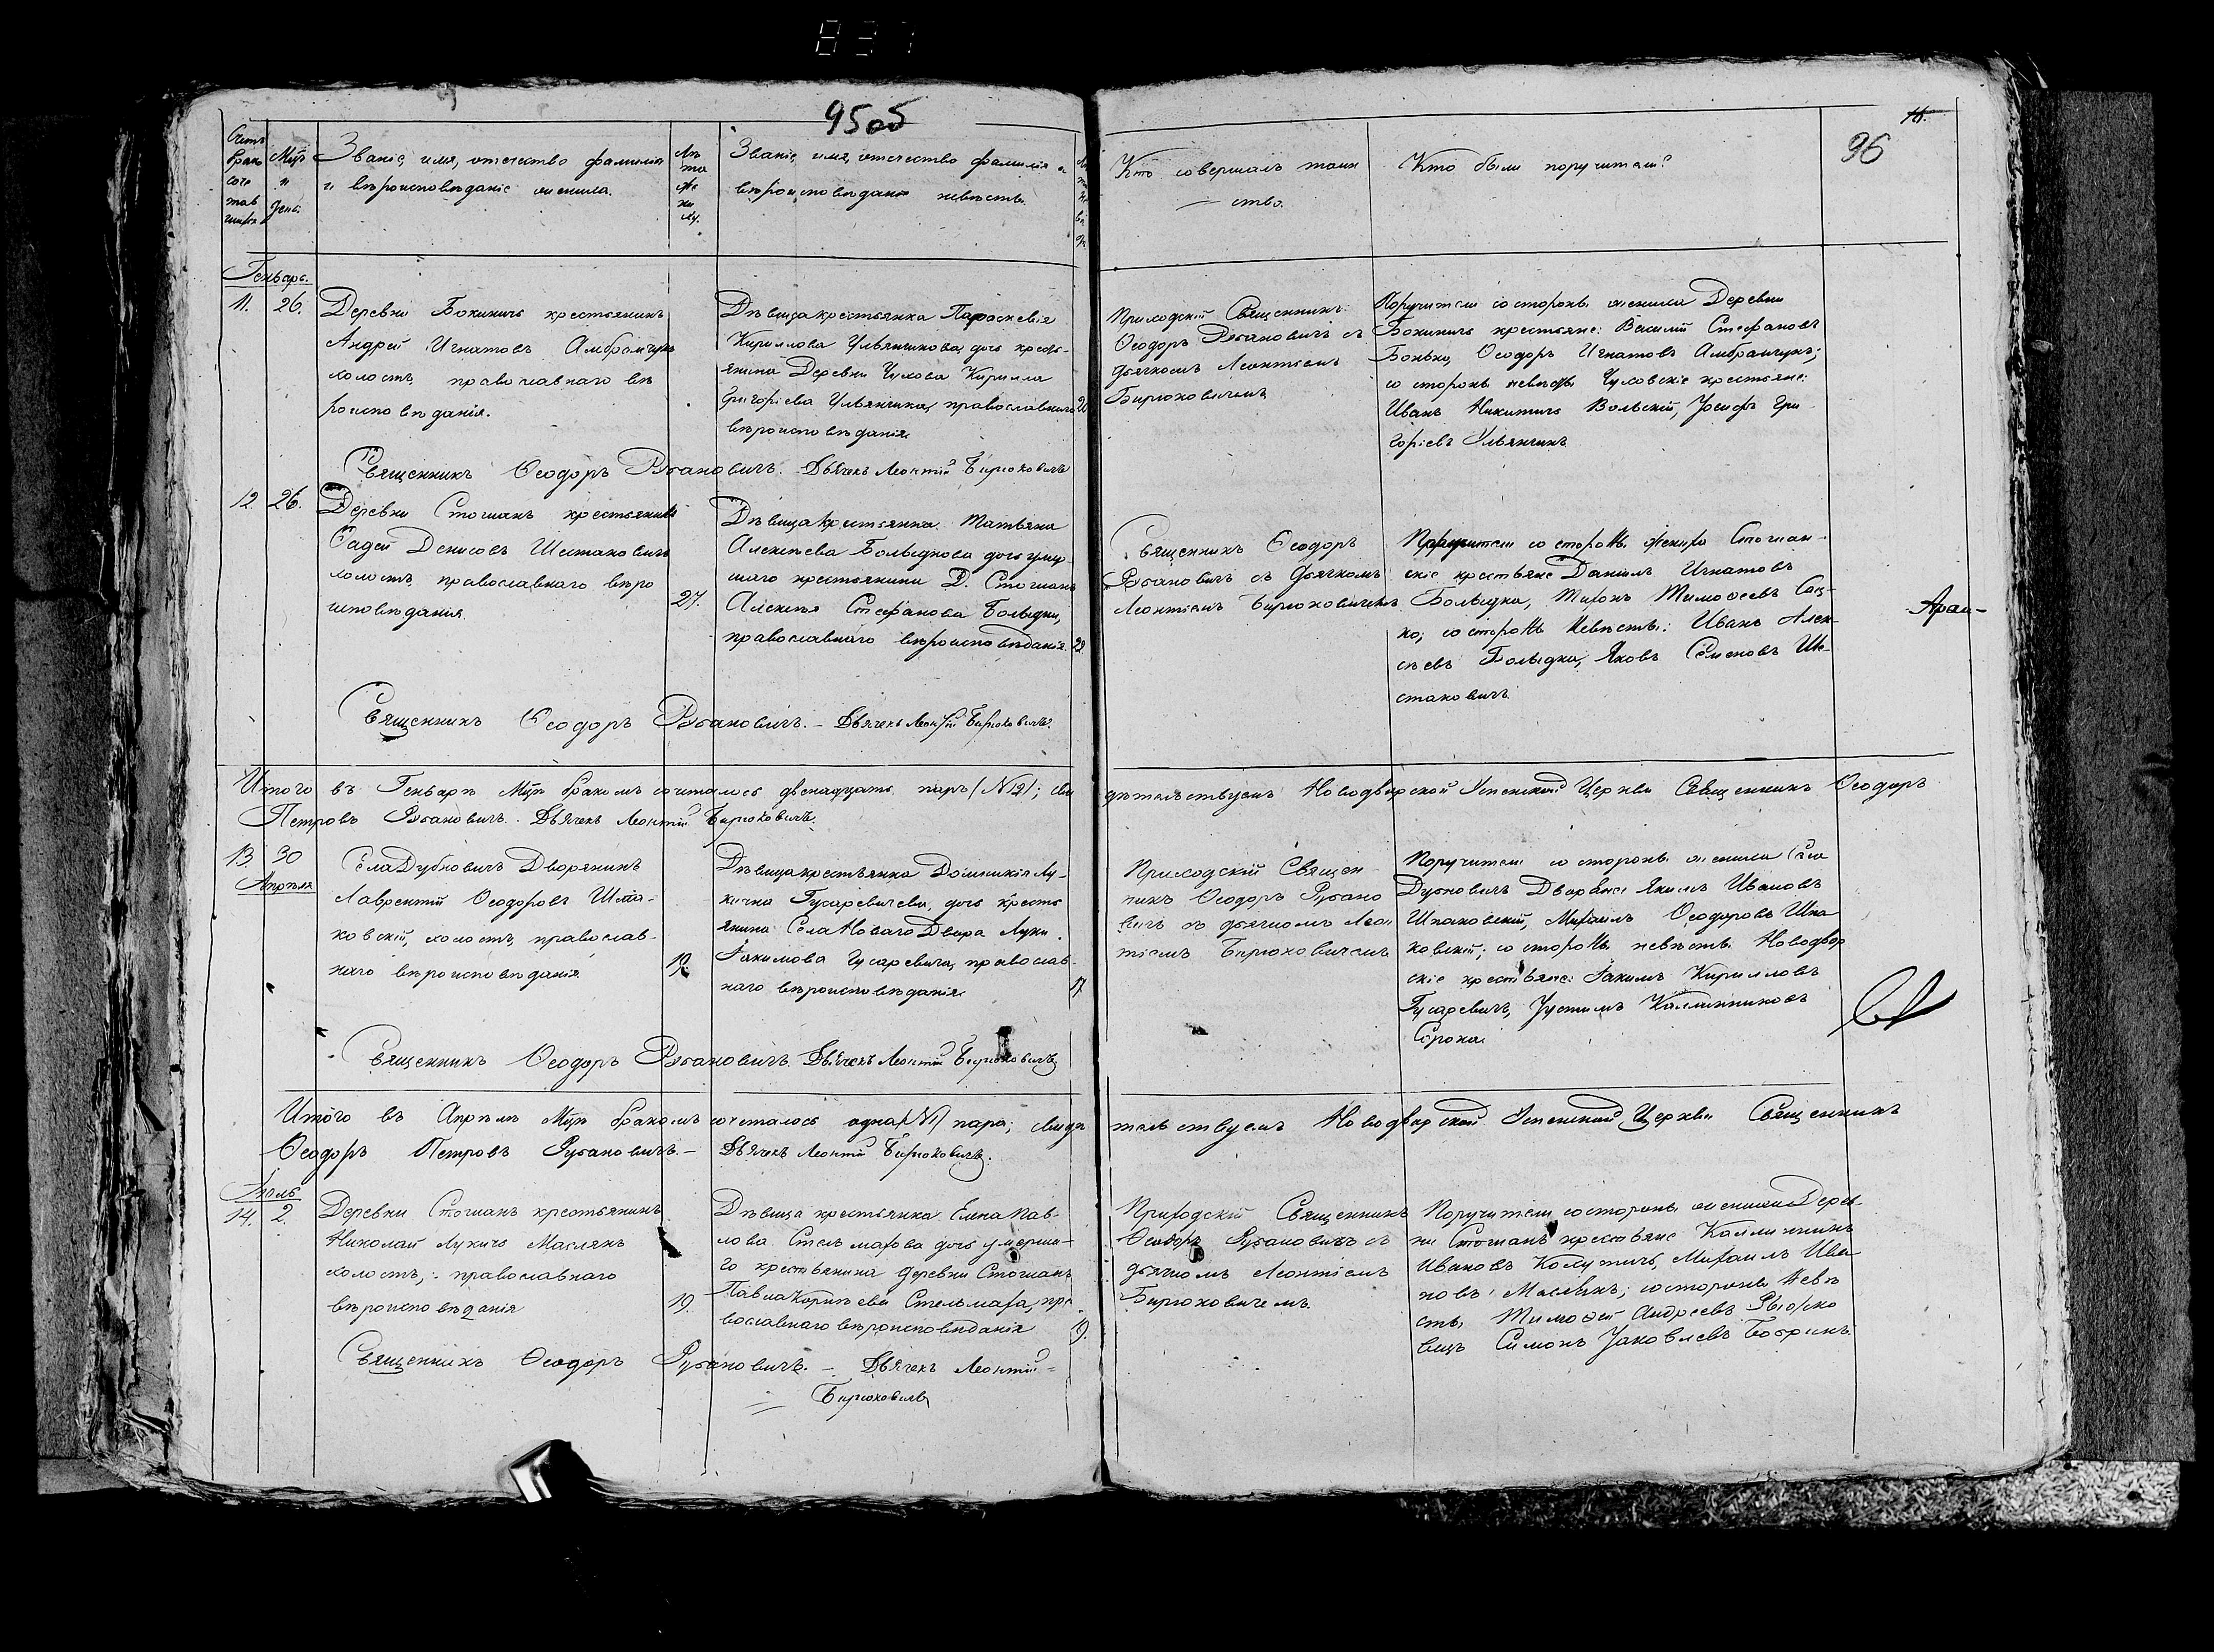 837
95об
16.
96
Счетъ брако соче тав шихся
Мцъ и день.
Званіе, имя, отечество фамилія
и вѣроисповѣданіе жениха.
Лѣ та же ни ху.
Званіе, имя, отечество фамилія и
вѣроисповѣданіе невѣсты.
Кто совершалъ таин
ство.
Кто были поручители?
Генварь.
11. 26.
Деревни Бокиничъ крестьянинъ
Андрей Игнатовъ Амбрамчукъ
холостъ, православнаго вѣ
роисповѣданія.
Дѣвица крестьянка Параскевія
Кириллова Ульянчикова, дочь кресть-
янина Деревни Чухова Кирилла
Григоріева Ульянчика, православнаго
вѣроисповѣданія.
Приходскій Священникъ
Ѳеодоръ Рубановичъ съ
дьячкомъ Леонтіемъ
Бирюковичемъ
Поручители со стороны жениха Деревни
Бокиничъ крестьяне: Василій Стефановъ
Бонько, Ѳеодоръ Игнатовъ Амбрамчукъ;
со стороны невѣсты Чуховскіе крестьяне:
Иванъ Никитичъ Вольскій, Іосифъ Гри
горіевъ Ульянчикъ
Священникъ Ѳеодоръ Рубановичъ. Дьячекъ Леонтій Бирюковичъ
12. 26.
Деревни Стошанъ крестьянинъ
Фадей Денисовъ Шестаковичъ
холостъ, православнаго вѣро
исповѣданія.
27.
Дѣвица крестьянка Татьяна
Алексѣева Болыднова дочь умер
шаго крестьянина Д. Стошанъ
Алексѣя Стефанова Болыдки,
православнаго вѣроисповѣданія. 22.
Священникъ Ѳеодоръ
Рубановичъ съ дьячкомъ
Леонтіемъ Бирюковичемъ
Поручители со стороны жениха Стошан-
скіе крестьяне Даніилъ Игнатовъ
Болыдка, Тихонъ Тимофеевъ Сац-
ко; со стороны невѣсты: Иванъ Алек-
сѣевъ Болыдка, Яковъ Семеновъ Ше-
стаковичъ
Священникъ Ѳеодоръ Рубановичъ. – Дьячекъ Леонтій Бирюковичъ.
Итого въ Генварѣ Мцѣ бракомъ сочеталось двенадцать паръ (№12); сви дѣтельствуемъ Новодворской Успенской Церкви Священникъ Ѳеодоръ
Петровъ Рубановичъ. Дьячекъ Леонтій Бирюковичъ.
13. 30
Апрѣля
Села Дубновичъ Дворянинъ
Лаврентій Ѳеодоровъ Шпа-
ковскій, холостъ, православ-
наго вѣроисповѣданія
19.
Дѣвица крестьянка Домникія Лу-
кична Гусаревичева, дочь кресть
янина Села Новаго Двора Луки
Іакимова Гусаревича, православ-
наго вѣроисповѣданія.
17
Приходскій Священ
никъ Ѳеодоръ Рубано
вичъ съ дьячкомъ Леон
тіемъ Бирюковичемъ
Поручители со стороны жениха Села
Дубновичъ Дворяне Якимъ Ивановъ
Шпаковскій, Михаилъ Ѳеодоровъ Шпа
ковскій; со стороны невѣсты Новодвор
скіе крестьяне: Іакимъ Кирилловъ
Гусаревичъ, Іустимъ Каллинниковъ
Сорока.
Священникъ Ѳеодоръ Рубановичъ. Дьячекъ Леонтій Бирюковичъ
Итого въ Апрѣлѣ Мцѣ бракомъ сочеталось одна (№1) пара; свидѣ тельствуемъ Новодворской Успенской Церкви Священникъ
Ѳеодоръ Петровъ Рубановичъ. – Дьячекъ Леонтій Бирюковичъ.
Іюль
14. 2.
Деревни Стошанъ крестьянинъ
Николай Лукичъ Маслякъ
холостъ, православнаго
вѣроисповѣданія
19.
Дѣвица крестьянка Елена Пав-
лова Стельмахова дочь умерша-
го крестьянина деревни Стошанъ
Павла Корнѣева Стельмаха, пра
вославнаго вѣроисповѣданія
19.
Приходскій Священникъ
Ѳеодоръ Рубановичъ съ
дьячкомъ Леонтіемъ
Бирюковичемъ.
Поручители со стороны жениха Дерев-
ни Стошанъ крестьяне Каллинникъ
Ивановъ Колутичъ, Михаилъ Ива
новъ Маслякъ; со стороны невѣ
сты Тимофей Андреевъ
Симонъ Яковлевъ Бобрикъ.
Священникъ Ѳеодоръ Рубановичъ. – Дьячекъ Леонтій
Бирюковичъ